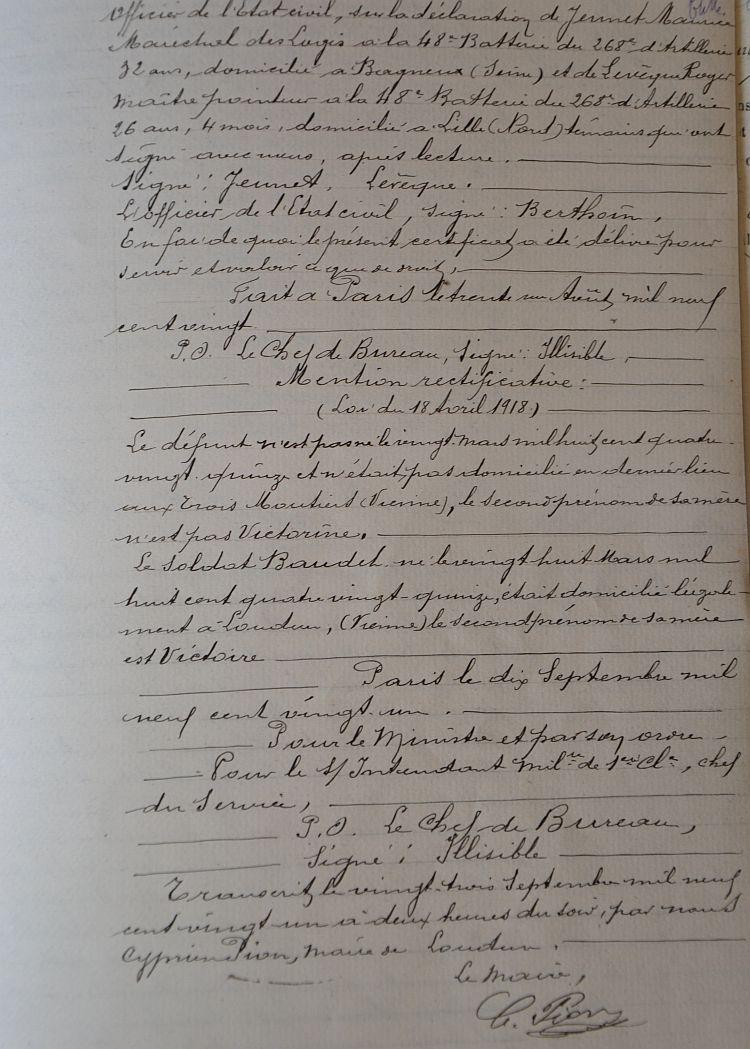 Officier de l'Etat civil, sur la déclaration de Jennet Maurice
Maréchal des Logis à la 48e Batterie du 268e d'Artillerie
32 ans, domicilié à Bagneux (Seine) et de Levêque Roger
maître pointeur à la 48e Batterie du 268e d'Artillerie
26 ans, 4 mois, domicilié à Lille (Nord) témoins qui ont
signé avec nous, après lecture.
Signé: Jennet, Levêque.
L'officier de l'Etat civil, signé: Berthoin,
En foi de quoi le présent certificat a été délivré pour
servir et valoir ce que de droit,
Fait à Paris le trente un Août mil neuf
cent vingt
P.O. Le Chef de Bureau, Signé: Illisible,
Mention rectificative:
(Loi du 18 Avril 1918)
Le défunt n'est pas né le vingt Mars mil huit cent quatre
vingt-quinze et n'était pas domicilié en dernier lieu
aux Trois Moutiers (Vienne), le second prénom de sa mère
n'est pas Victorine.
Le soldat Baudet né le vingt huit Mars mil
huit cent quatre vingt-quinze, était domicilié légale-
ment à Loudun, (Vienne) le second prénom de sa mère
est Victoire
Paris le dix Septembre mil
neuf cent vingt-un.
Pour le Ministre et par son ordre
Pour le S/Intendant Milre de 1ere Cle, chef
du Service,
P.O. Le Chef de Bureau,
Signé: Illisible
Transcrit le vingt-trois Septembre mil neuf
cent vingt un à deux heures du soir, par nous
Cyprien Pion, maire de Loudun.
Le Maire,
C. Pion